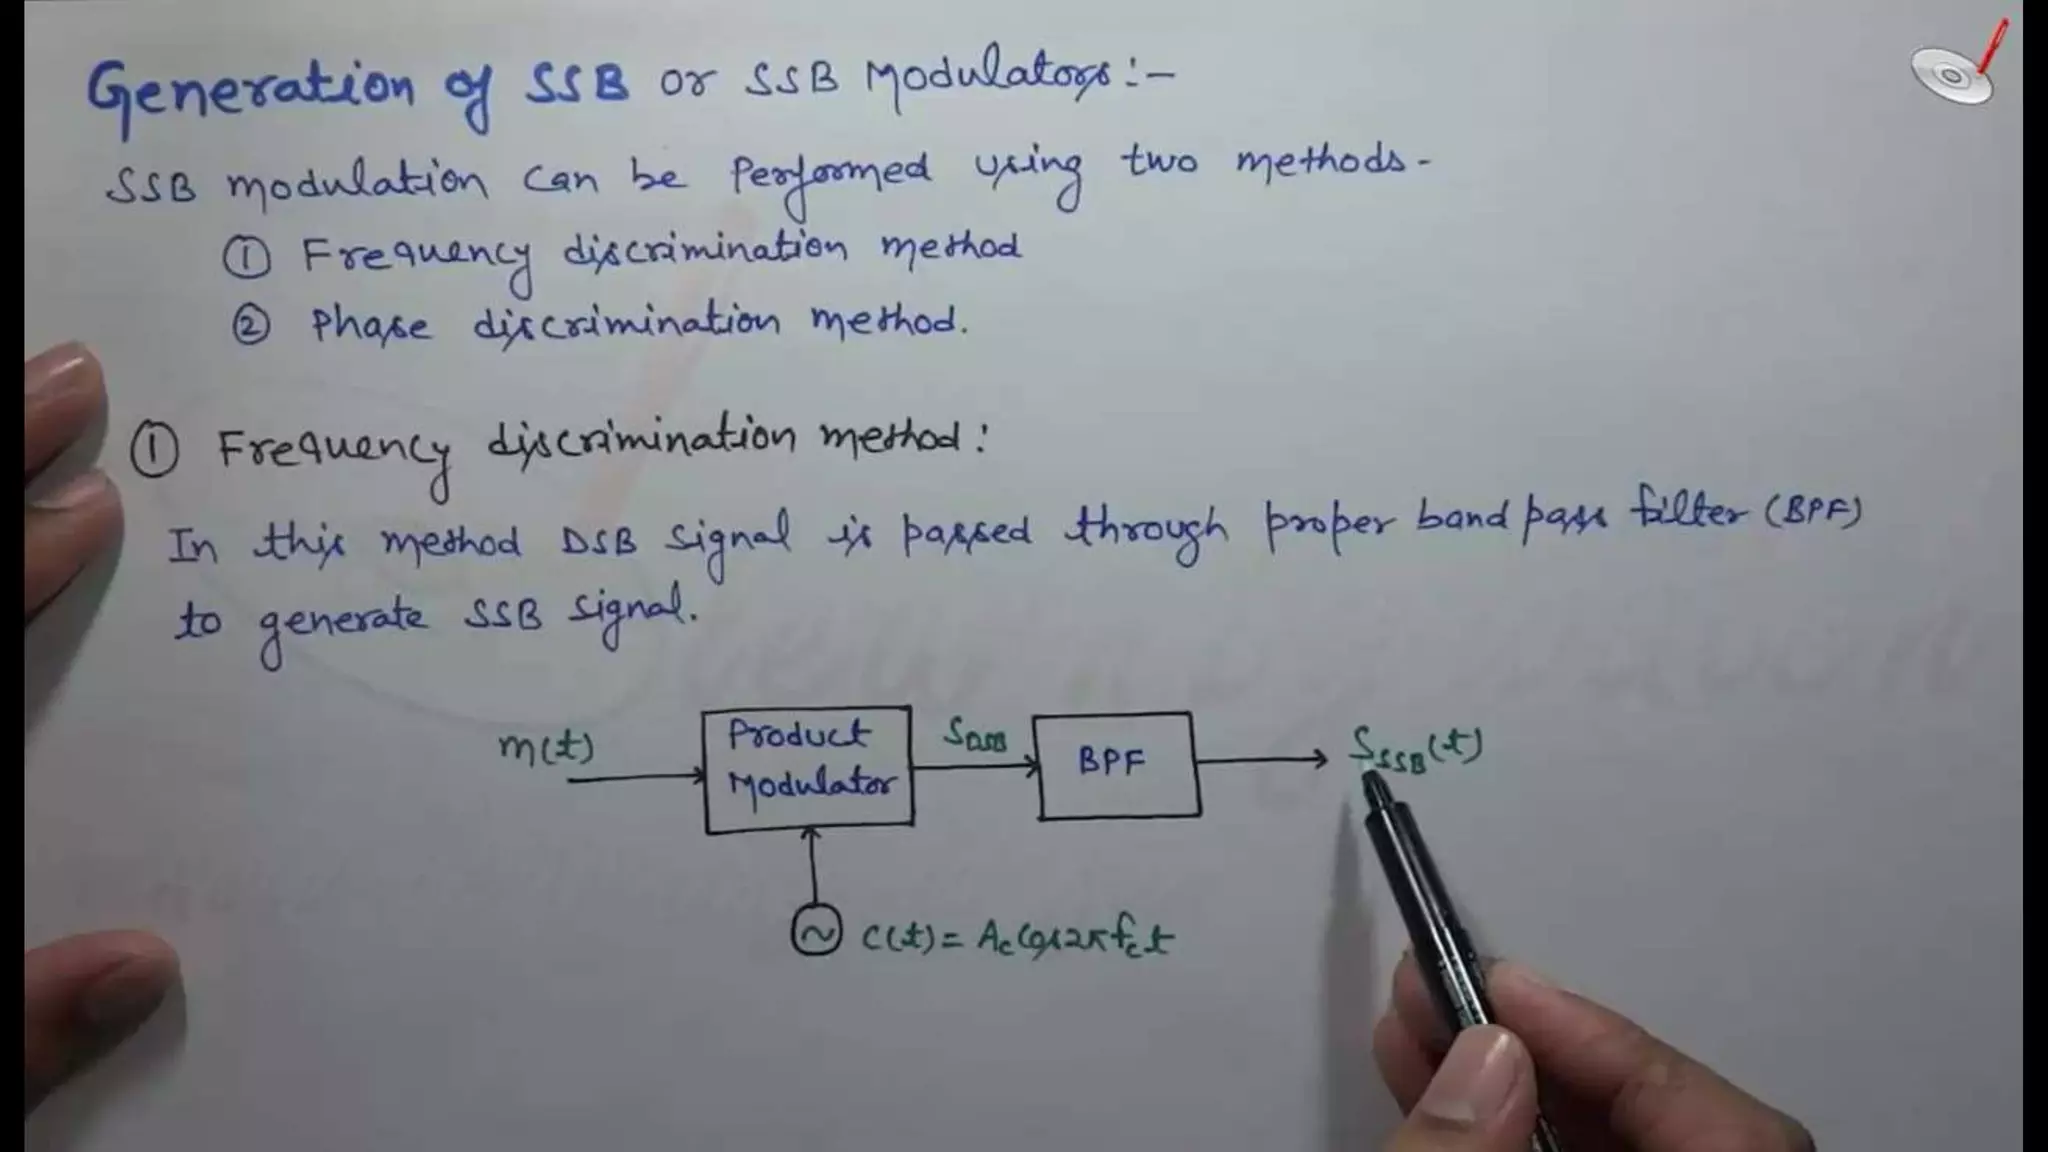 Generation of SSB or SSB Modulators:-
SSB modulation can be Performed using two methods-
① Frequency discrimination method
② Phase discrimination method.
① Frequency discrimination method:
In this method DSB signal is passed through proper band pass filter (BPF)
to generate SSB signal.
m(t)
Product
Modulator
S_DSB
BPF
S_SSB(t)
c(t) = A_c Cos2πf_c t